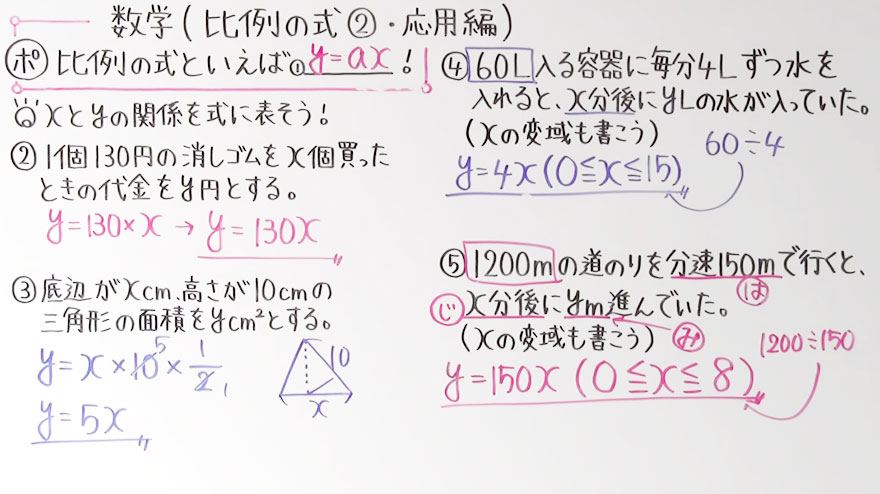 数学(比例の式②・応用編)
ポ 比例の式といえば① y=ax!
xとyの関係を式に表そう!
② 1個130円の消しゴムをx個買った
ときの代金をy円とする。
y=130×x → y=130x
③ 底辺がxcm、高さが10cmの
三角形の面積をycm²とする。
y=x×10×1/2
5
1
y=5x
10
x
④ 60L入る容器に毎分4Lずつ水を
入れると、x分後にyLの水が入っていた。
(xの変域も書こう)
60÷4
y=4x(0≦x≦15)
⑤ 1200mの道のりを分速150mで行くと、
は
じ x分後にym進んでいた。
(xの変域も書こう)
み
1200÷150
y=150x(0≦x≦8)